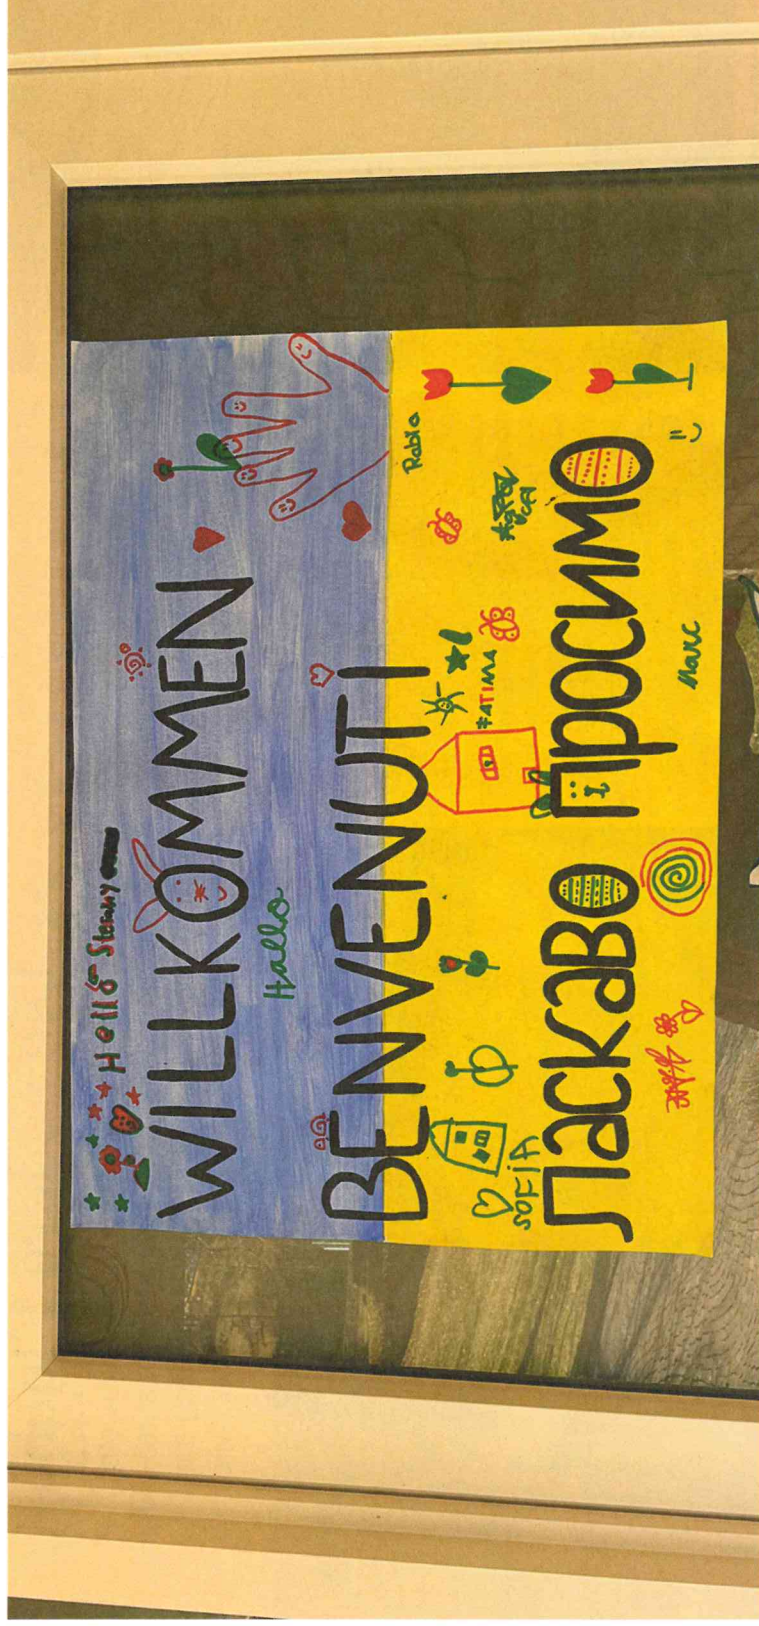 Hello
WILLKOMMEN
Hallo
BENVENUTI
Rabia
FATIMA
SOFIA
Ласкаво просимо
Marc